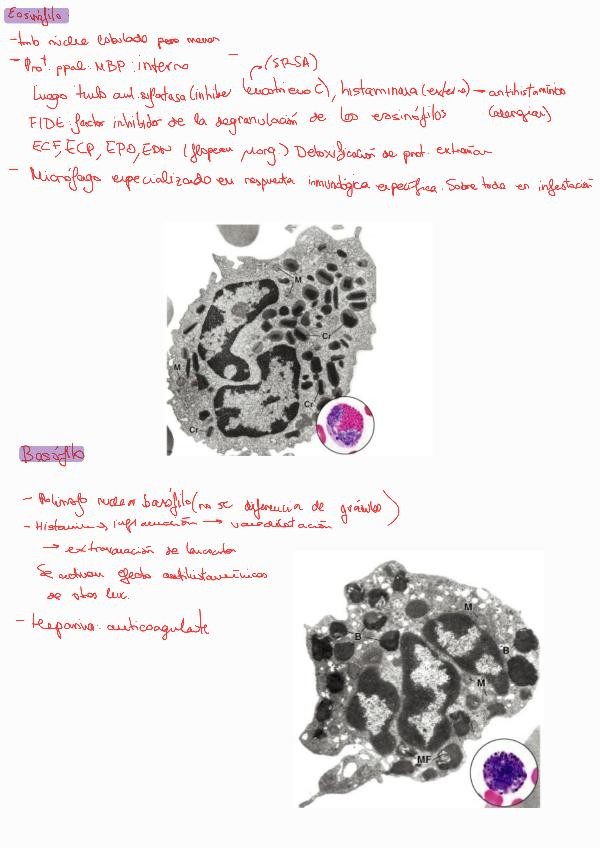 Eosinófilo
- tmb núcleo lobulado pero menos
- Prot ppal: MBP: interno
(SRSA)
Luego tmb aril sulfatasa (inhibe leucotrieno C), histaminasa (externo) → antihistamínico
FIDE: factor inhibidor de la degranulación de los eosinófilos (alergias)
ECF, ECP, EPO, EDN Detoxificación de prot. extrañas
- Micrófago especializado en respuesta inmunológica específica. Sobre todo en infestación
M
Cr
M
Cr
Cr
Basófilo
- núcleo basófilo (no se diferencia de gránulos)
- Histamina → inflamación → vasodilatación
→ extravasación de leucocitos
Se activan efecto antihistamínicos
de otros leuc.
- Heparina: anticoagulante
M
B
B
M
MF